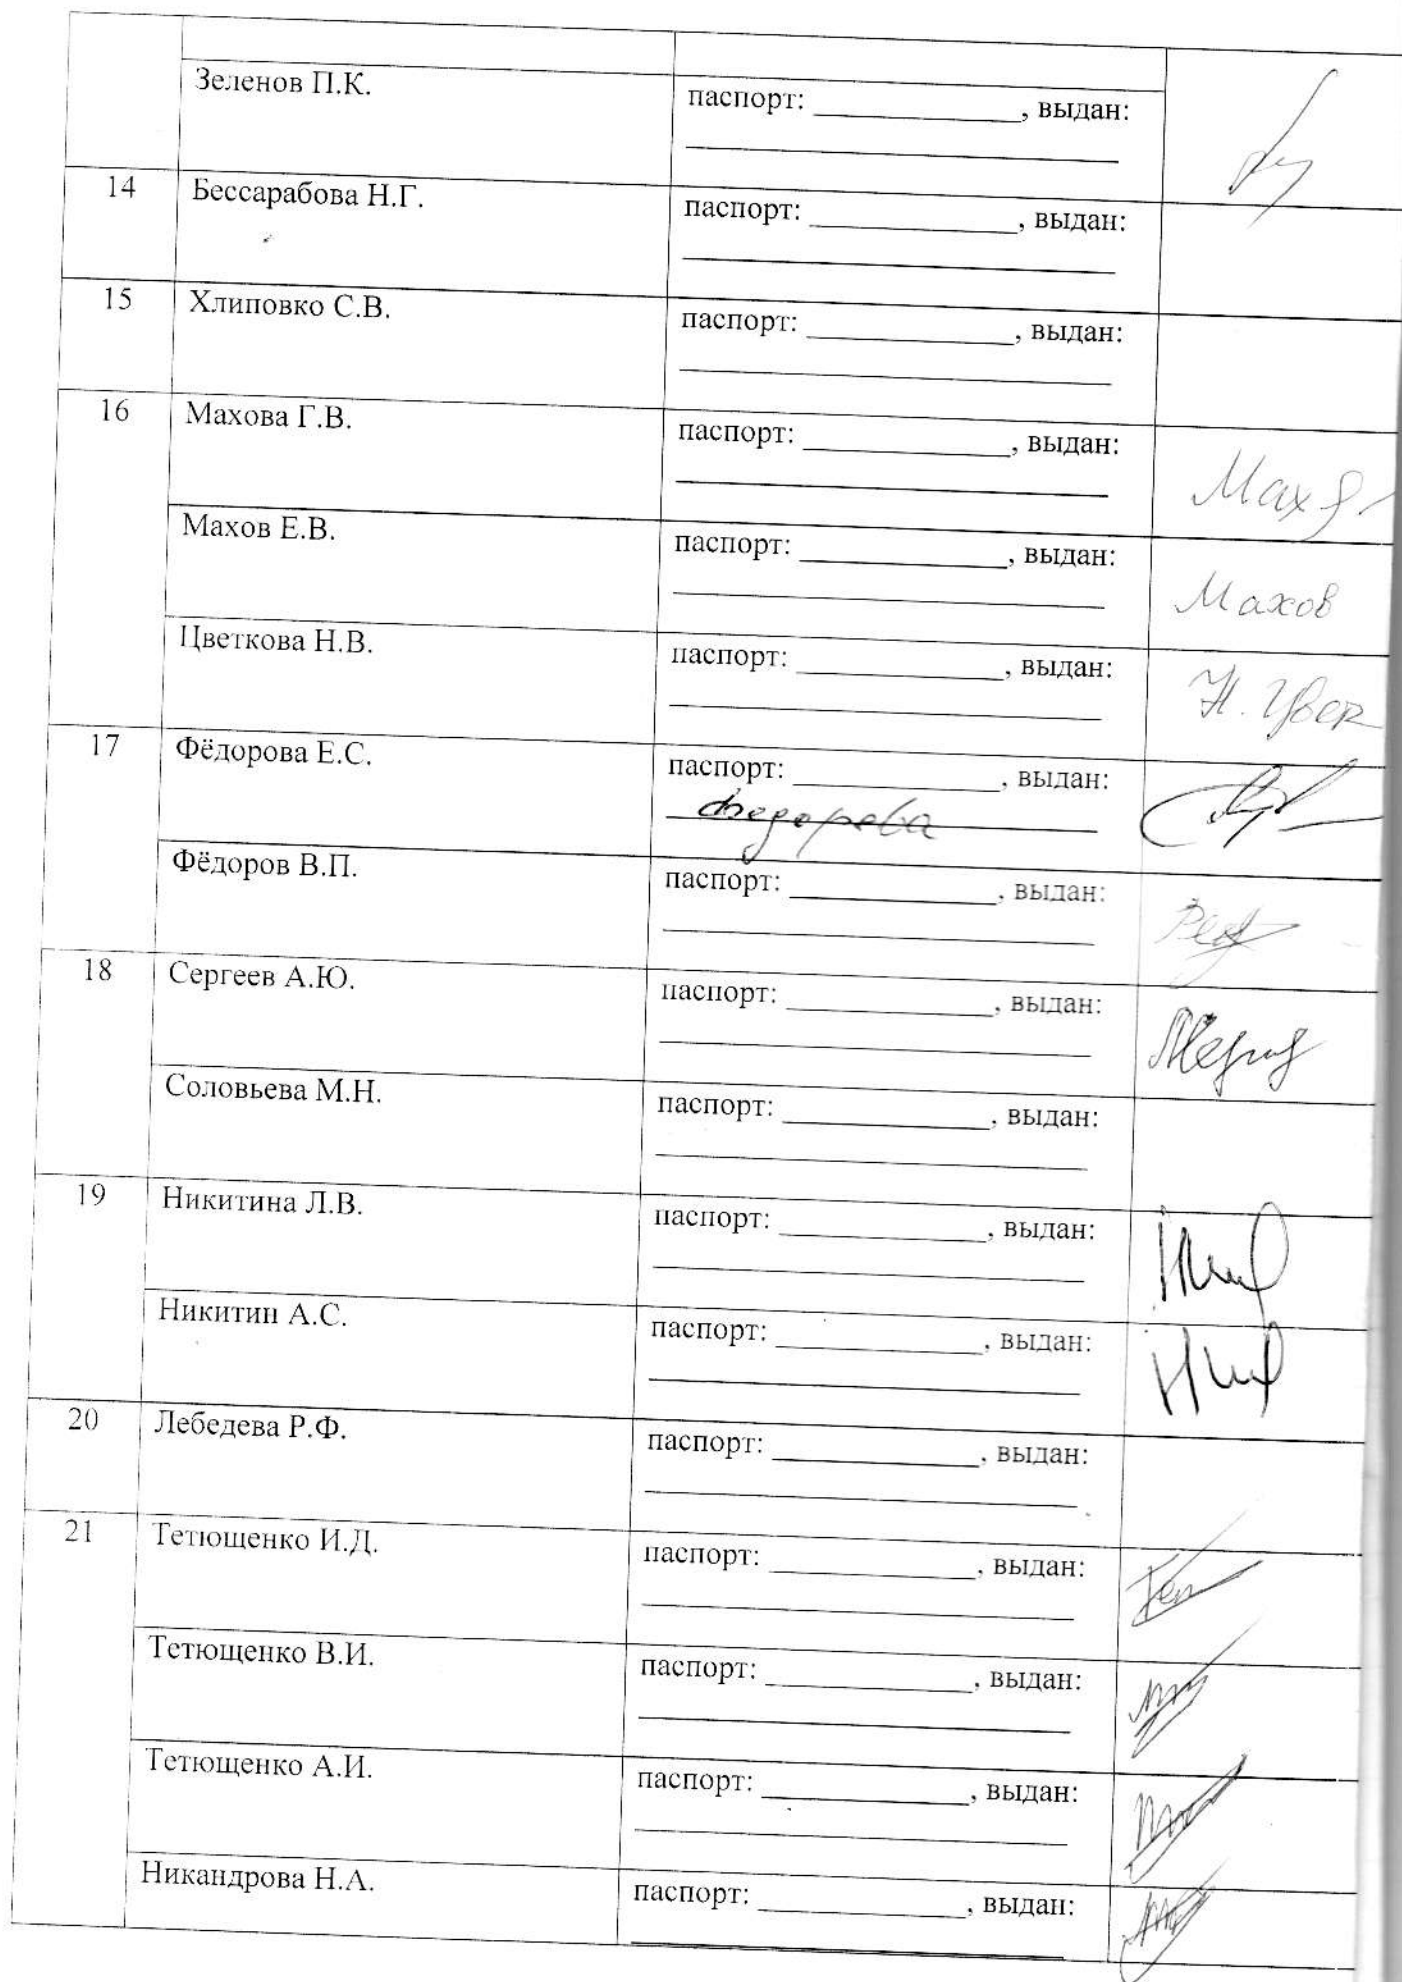 Зеленов П.К.
паспорт: ______________, выдан:
14 Бессарабова Н.Г.
паспорт: ______________, выдан:
15 Хлиповко С.В.
паспорт: ______________, выдан:
16 Махова Г.В.
паспорт: ______________, выдан:
Мах
Махов Е.В.
паспорт: ______________, выдан:
Махов
Цветкова Н.В.
паспорт: ______________, выдан:
Н. Цвет
17 Фёдорова Е.С.
паспорт: ______________, выдан:
Федорова
Фёдоров В.П.
паспорт: ______________, выдан:
18 Сергеев А.Ю.
паспорт: ______________, выдан:
Соловьева М.Н.
паспорт: ______________, выдан:
19 Никитина Л.В.
паспорт: ______________, выдан:
Никитин А.С.
паспорт: ______________, выдан:
20 Лебедева Р.Ф.
паспорт: ______________, выдан:
21 Тетющенко И.Д.
паспорт: ______________, выдан:
Тетющенко В.И.
паспорт: ______________, выдан:
Тетющенко А.И.
паспорт: ______________, выдан:
Никандрова Н.А.
паспорт: ______________, выдан: